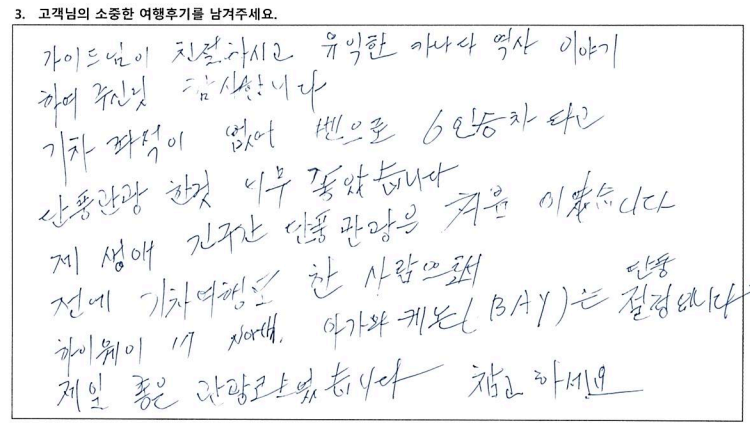 3. 고객님의 소중한 여행후기를 남겨주세요.
가이드님이 친절하시고 유익한 카나다 역사 이야기
하여 주신것 감사합니다
기차 좌석이 없어 벤으로 6인승차 타고
단풍관광 한것 너무 좋았습니다
제 생애 긴구간 단풍관광은 처음 이었습니다
전에 기차여행도 한 사람으로서 단풍
하이웨이 17 지역, 아가와 케논(BAY)는 절정입니다
제일 좋은 관광코스였습니다 참고 하세요